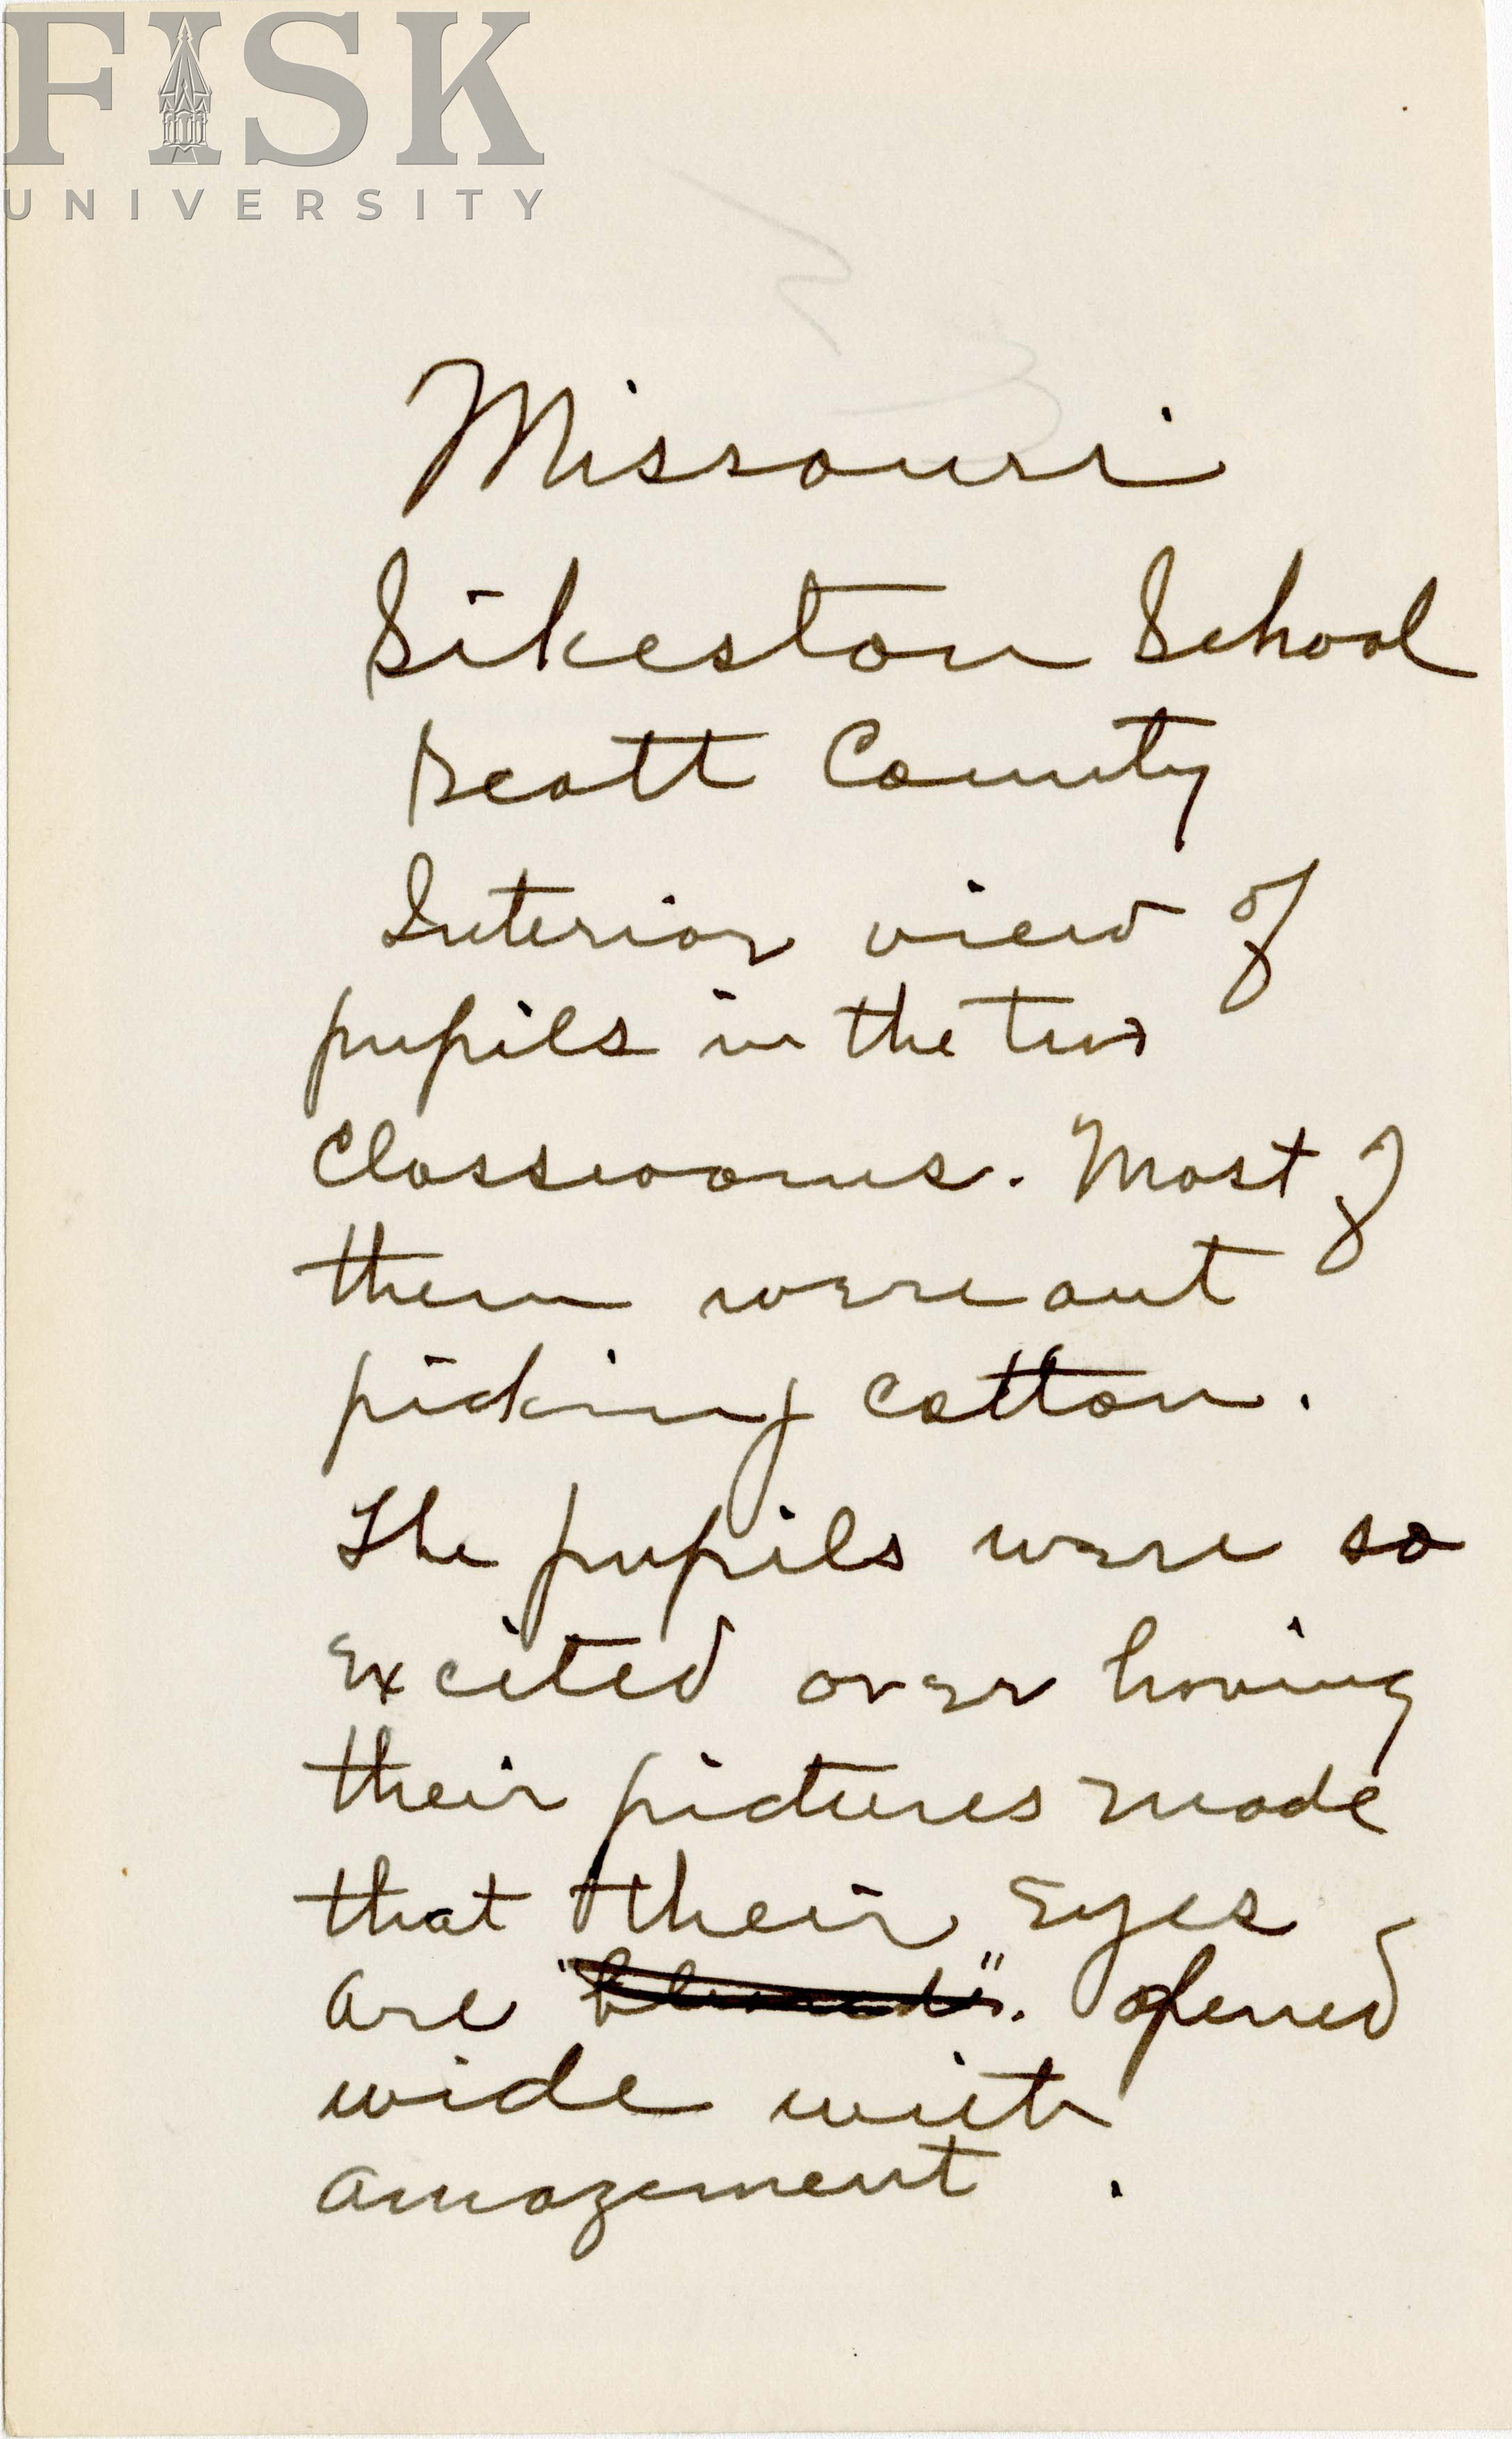 FISK
UNIVERSITY
Missouri
Sikeston School
Scott County
Interior view of
pupils in the two
classrooms. Most of
them were out
picking cotton.
The pupils were so
excited over having
their pictures made
that their eyes
are opened
wide with
amazement.